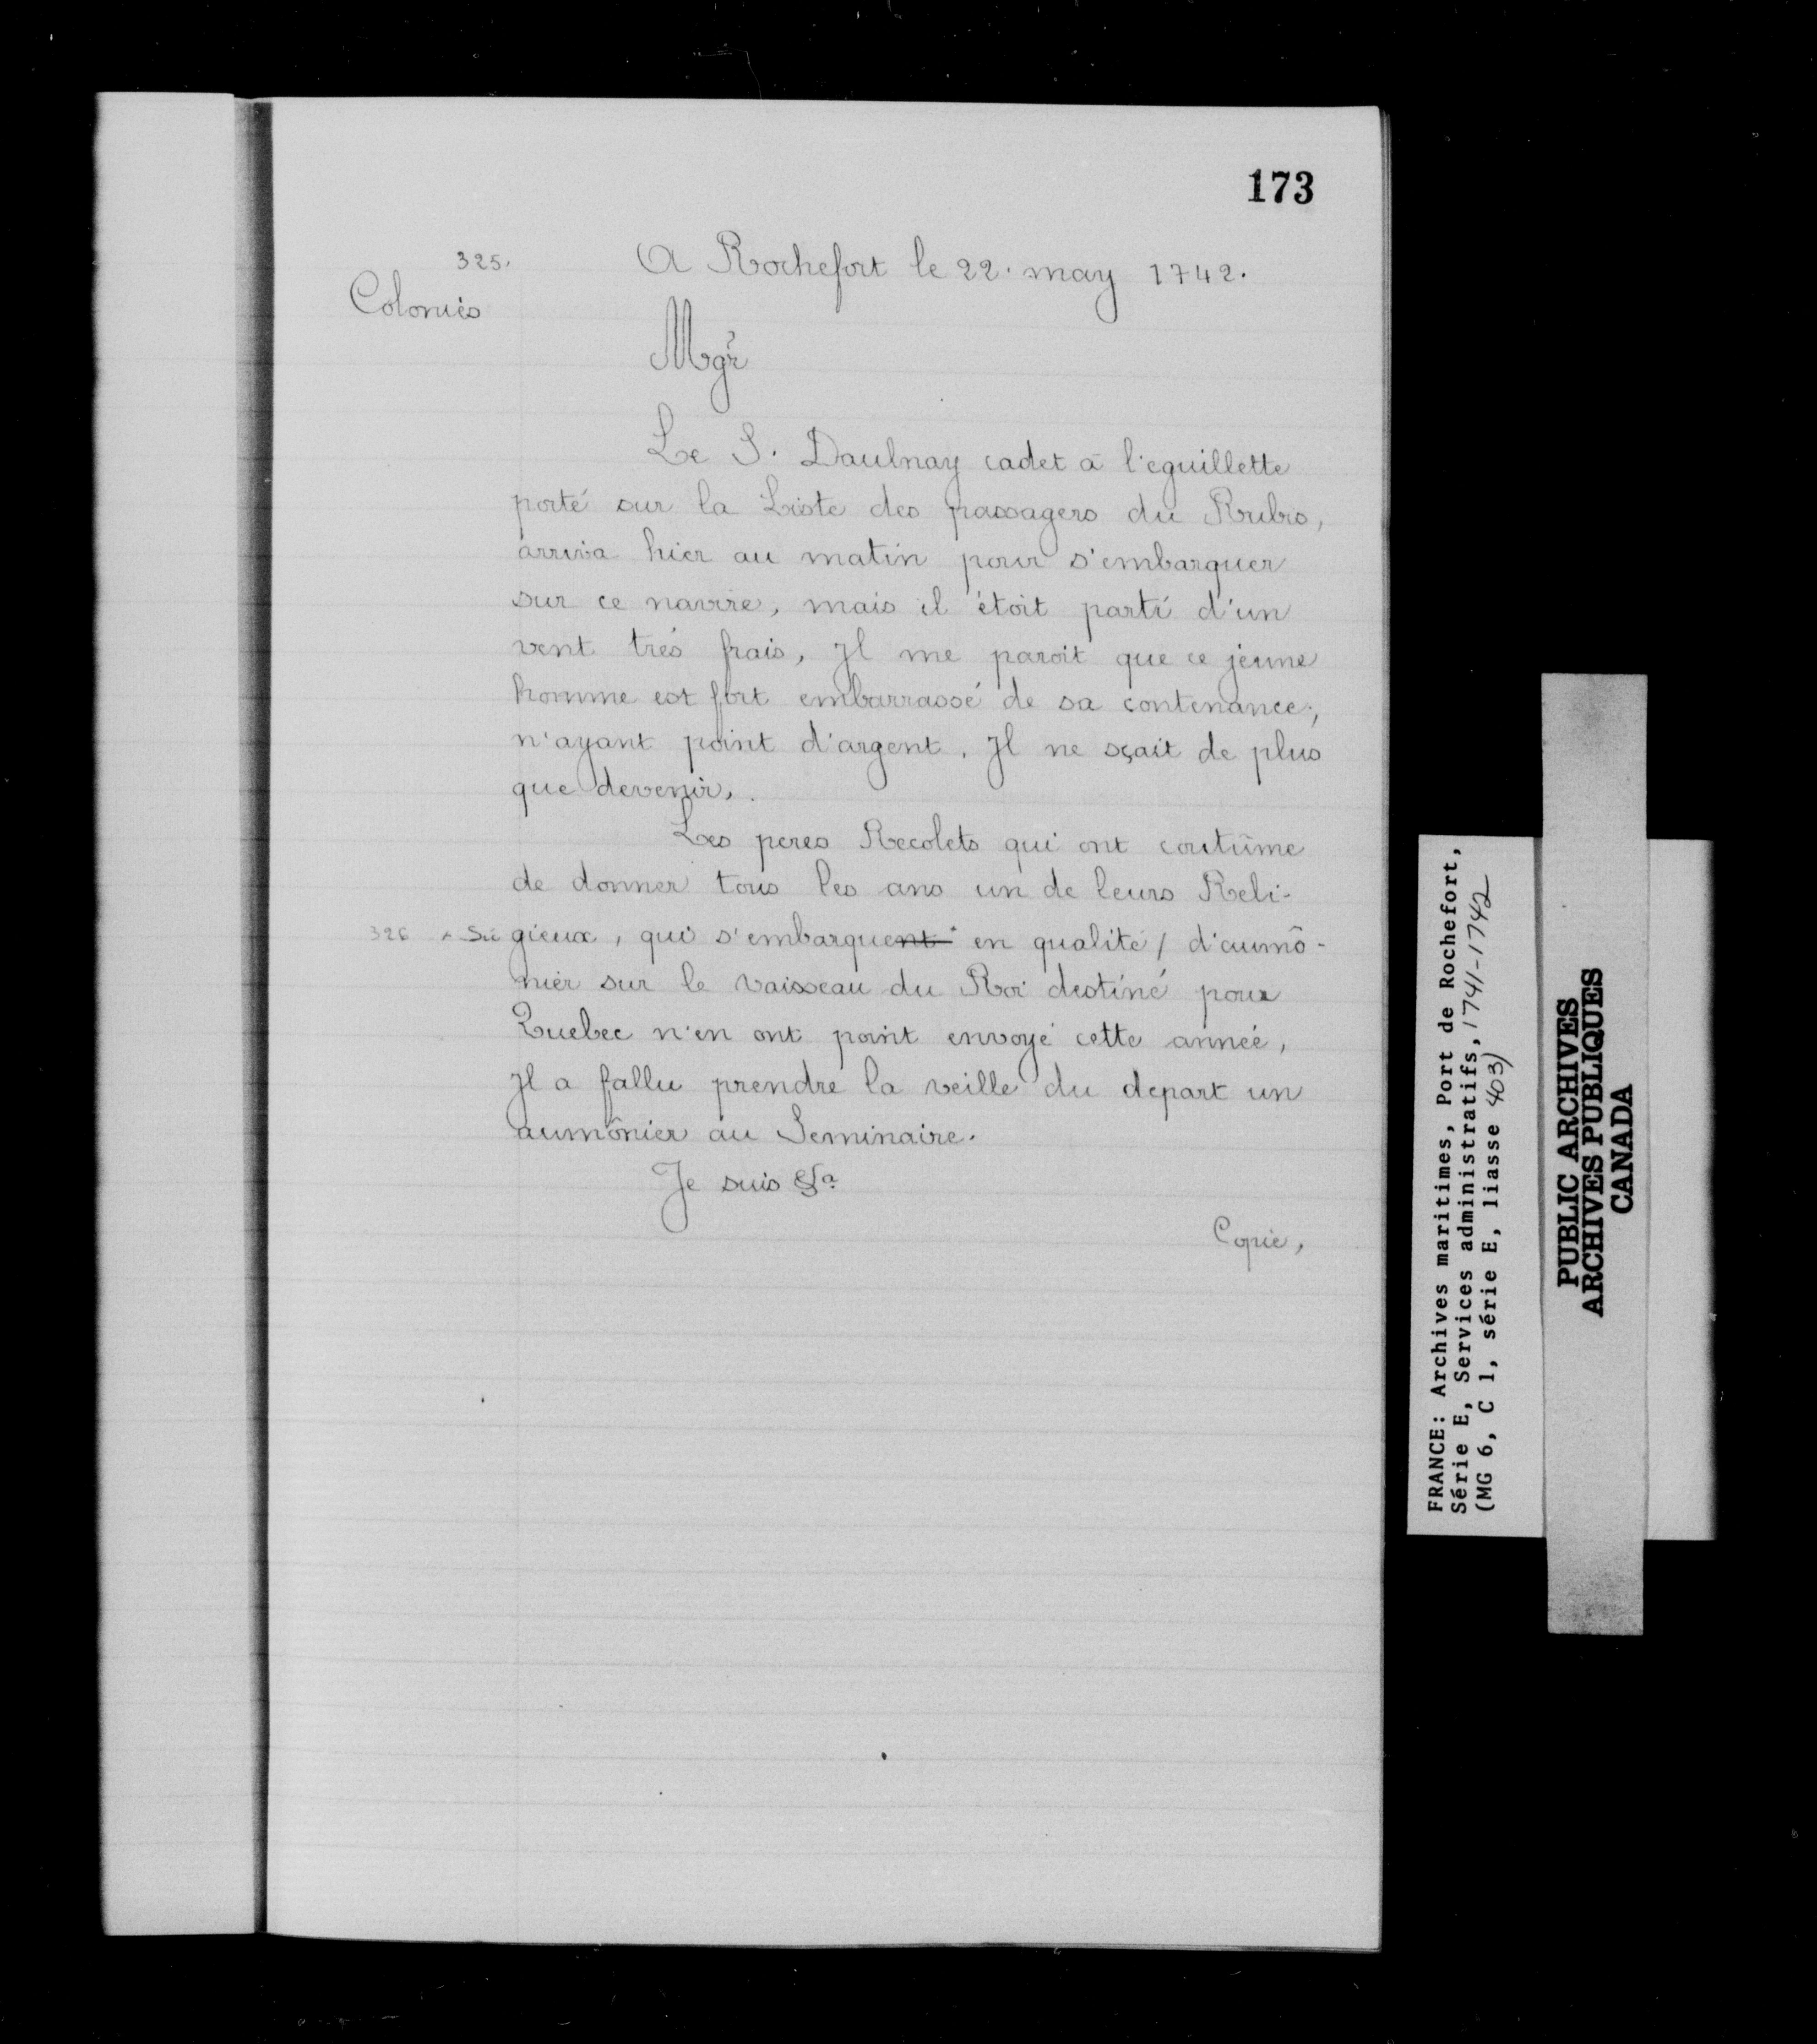 173
325.
A Rochefort le 22. may 1742.
Colonies
Mgr
Le S. Daulnay cadet à l'eguillette
porté sur la Liste des passagers du Rubis,
arriva hier au matin pour s'embarquer
sur ce navire, mais il étoit parti d'un
vent très frais, Il me paroit que ce jeune
homme est fort embarrassé de sa contenance,
n'ayant point d'argent. Il ne sçait de plus
que devenir.
Les peres Recolets qui ont coutûme
de donner tous les ans un de leurs Reli-
326 * Sic gieux, qui s'embarquent * en qualité / d'aumô-
nier sur le vaisseau du Roi destiné pour
Quebec n'en ont point envoyé cette année,
Il a fallu prendre la veille du depart un
aumônier au Seminaire.
Je suis &a
Copie,
FRANCE: Archives maritimes, Port de Rochefort,
Série E, Services administratifs, 1741-1742
(MG 6, C 1, série E, liasse 403)
PUBLIC ARCHIVES
ARCHIVES PUBLIQUES
CANADA